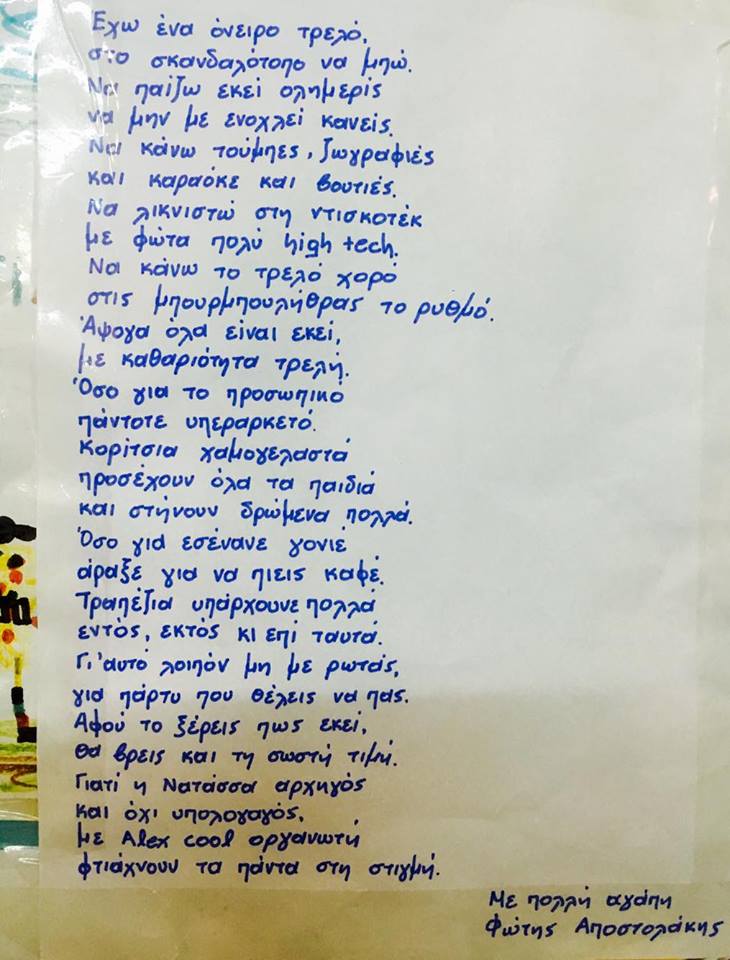 Έχω ένα όνειρο τρελό,
στο σκανδαλότοπο να μπώ.
Να παίζω εκεί ολημερίς
να μην με ενοχλεί κανείς.
Να κάνω τούμπες, ζωγραφιές
και καραόκε και βουτιές.
Να λικνιστώ στη ντισκοτέκ
με φώτα πολύ high tech.
Να κάνω το τρελό χορό
στις μπουρμπουλήθρας το ρυθμό.
Άψογα όλα είναι εκεί,
με καθαριότητα τρελή.
Όσο για το προσωπικό
πάντοτε υπεραρκετό.
Κορίτσια χαμογελαστά
προσέχουν όλα τα παιδιά
και στήνουν δρώμενα πολλά.
Όσο γιά εσένανε γονιέ
άραξε για να πιεις καφέ.
Τραπέζια υπάρχουνε πολλά
εντός, εκτός κι επί ταυτά.
Γι'αυτό λοιπόν μη με ρωτάς,
για πάρτυ που θέλεις να πας.
Αφού το ξέρεις πως εκεί,
θα βρεις και τη σωστή τιμή.
Γιατί η Νατάσσα αρχηγός
και όχι υπολογαγός,
με Alex cool οργανωτή
φτιάχνουν τα πάντα στη στιγμή.
Με πολλή αγάπη
Φώτης Αποστολάκης